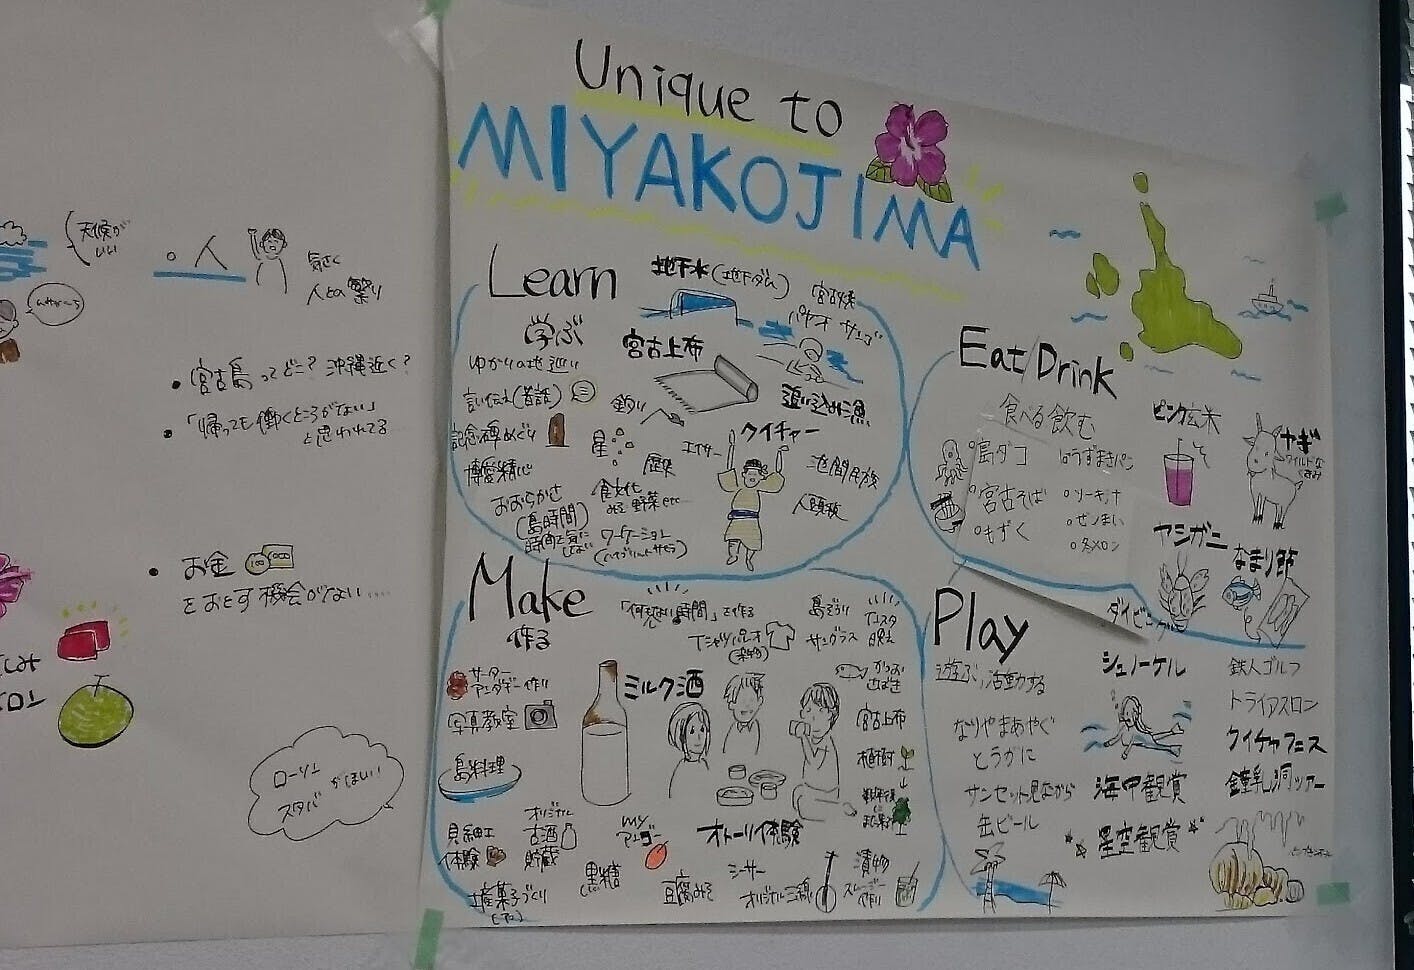 天候が
いい
人
気さく
人との繋り
・宮古島ってどこ? 沖縄近く?
・「帰っても働くところがない」
と思われてる
・お金
をおとす機会がない……
ローソン
スタバ がほしい
Unique to
MIYAKOJIMA
Learn
学ぶ
地下水(地下ダム)
宮古上布
ゆかりの地巡り
言い伝え(昔話)
釣り
追い込み漁
記念碑めぐり
星
歴史
エイサー
クイチャー
池間民族
博愛精神
おおらかさ
(島時間)
時間を気に
しない
食文化
野菜 etc
人頭税
ワーケーション
Eat/Drink
食べる飲む
島ダコ
うずまきパン
宮古そば
ソーキ汁
もずく
ゼンまい
冬メロン
ピンク玄米
ヤギ
ヤシガニ
なまり節
Make
作る
「何もしない時間」を作る
島ぞうり
サングラス
サーター
アンダギー作り
写真教室
島料理
ミルク酒
かつお
宮古上布
植樹
貝細工
体験
オリジナル
古酒
貯蔵
my
黒糖
オトーリ体験
豆腐みそ
シーサー
オリジナル三線
漬物
スムージー
作り
土産菓子づくり
Play
遊ぶ、活動する
ダイビング
シュノーケル
鉄人ゴルフ
トライアスロン
なりやまあやぐ
とうがに
クイチャフェス
サンセット見ながら
缶ビール
海中観賞
鍾乳洞ツアー
星空観賞